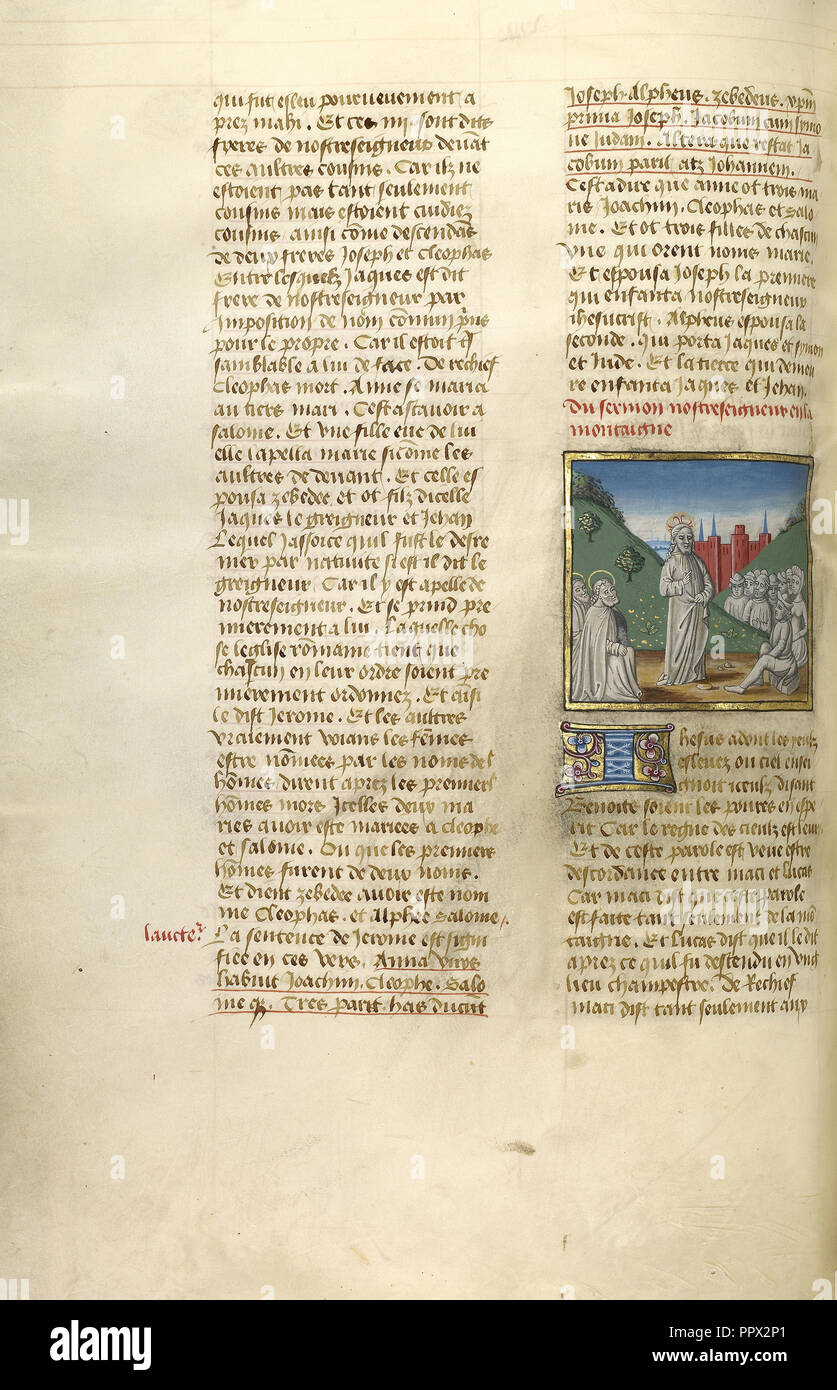 qui fut esleu pourvevement a
prez mahi. Et ces iiii. sont dits
freres de nostreseigneur devāt
ces aultres cousins. Car ilz ne
estoient pas tant seulement
cousins mais estoient cuidiez
cousins ainsi cōme descendās
de deux freres Joseph et Cleophas
Entre lesquelz Jaques est dit
frere de nostreseigneur par
imposition de nom cōmun
pour le propre. Car il estoit
samblable a lui de face. De rechief
Cleophas mort. Anne se maria
au tiers mari. Cest assavoir a
salome. Et une fille eue de lui
elle lapella marie sicōme les
aultres de devant. Et celle es
pousa zebedee et ot filz dicelle
Jaques le greigneur et Jehan
Lequel Jassoice quil fust le desre
nier par nativite si est il dit le
greigneur. Car il y est apelle de
nostreseigneur. Et se prind pre
mierement a lui. Laquelle cho
se leglise rōmaine tient que
chascun en leur ordre soient pre
mierement ordonnez. Et ausi
le dist Jerome. Et les aultres
vraiement voians les fēmes
estre nōmees par les noms des
hōmes dirent aprez les premiers
hōmes mors Icelles deux ma
ries avoir este mariees a cleophe
et salome. Ou que les premiers
hōmes furent de deux noms.
Et dient zebedee avoir este nom
me Cleophas. et Alphee Salome.
laucte.
La sentence de Jerome est signi
fiee en ces vers. Anna viros
habuit Joachin. Cleophe. Salo
me q3. Tres parit. has ducūt
Joseph. Alpheus. zebedeus. xpm̄
prima Joseph. Jacobum cum symo
ne Judam. Altera que restat Ja
cobum parit atz Johannem.
Cest a dire que anne ot trois ma
ris Joachin. Cleophas et Salo
me. Et ot trois filles de chascun
une qui orent noms marie.
Et espousa Joseph la premiere
qui enfanta nostreseigneur
ihesucrist. Alpheus espousa la
seconde. qui porta Jaques et symon
et Jude. Et la tierce qui demou
re enfanta Jaques et Jehan.
Du sermon nostreseigneur en la
montaigne
Ihesus adont les yeulx
eslevez ou ciel ensei
gnoit iceulz disant
Benoite soient les povres en espe
rit Car le regne des cieulz est leur
Et de ceste parole est venue estre
descordance entre maci et lucas
Car maci dit parole
est faite vraiement de la mō
taigne. Et Lucas dist que il le dit
aprez ce quil fu descendu en ung
lieu champestre. De Rechief
maci dist tant seulement aux
a alamy stock photo
alamy
Image ID: PPX2P1
www.alamy.com